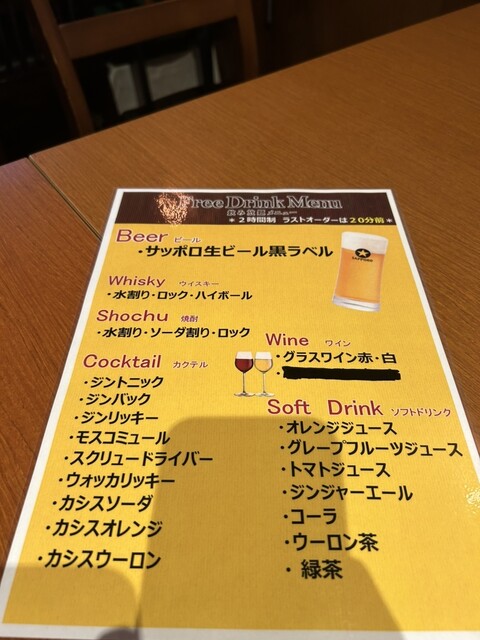 Free Drink Menu
飲み放題メニュー
＊２時間制 ラストオーダーは２０分前＊
Beer ビール
・サッポロ生ビール黒ラベル
Whisky ウイスキー
・水割り・ロック・ハイボール
Shochu 焼酎
・水割り・ソーダ割り・ロック
Wine ワイン
・グラスワイン赤・白
・
Cocktail カクテル
・ジントニック
・ジンバック
・ジンリッキー
・モスコミュール
・スクリュードライバー
・ウォッカリッキー
・カシスソーダ
・カシスオレンジ
・カシスウーロン
Soft Drink ソフトドリンク
・オレンジジュース
・グレープフルーツジュース
・トマトジュース
・ジンジャーエール
・コーラ
・ウーロン茶
・緑茶
SAPPORO